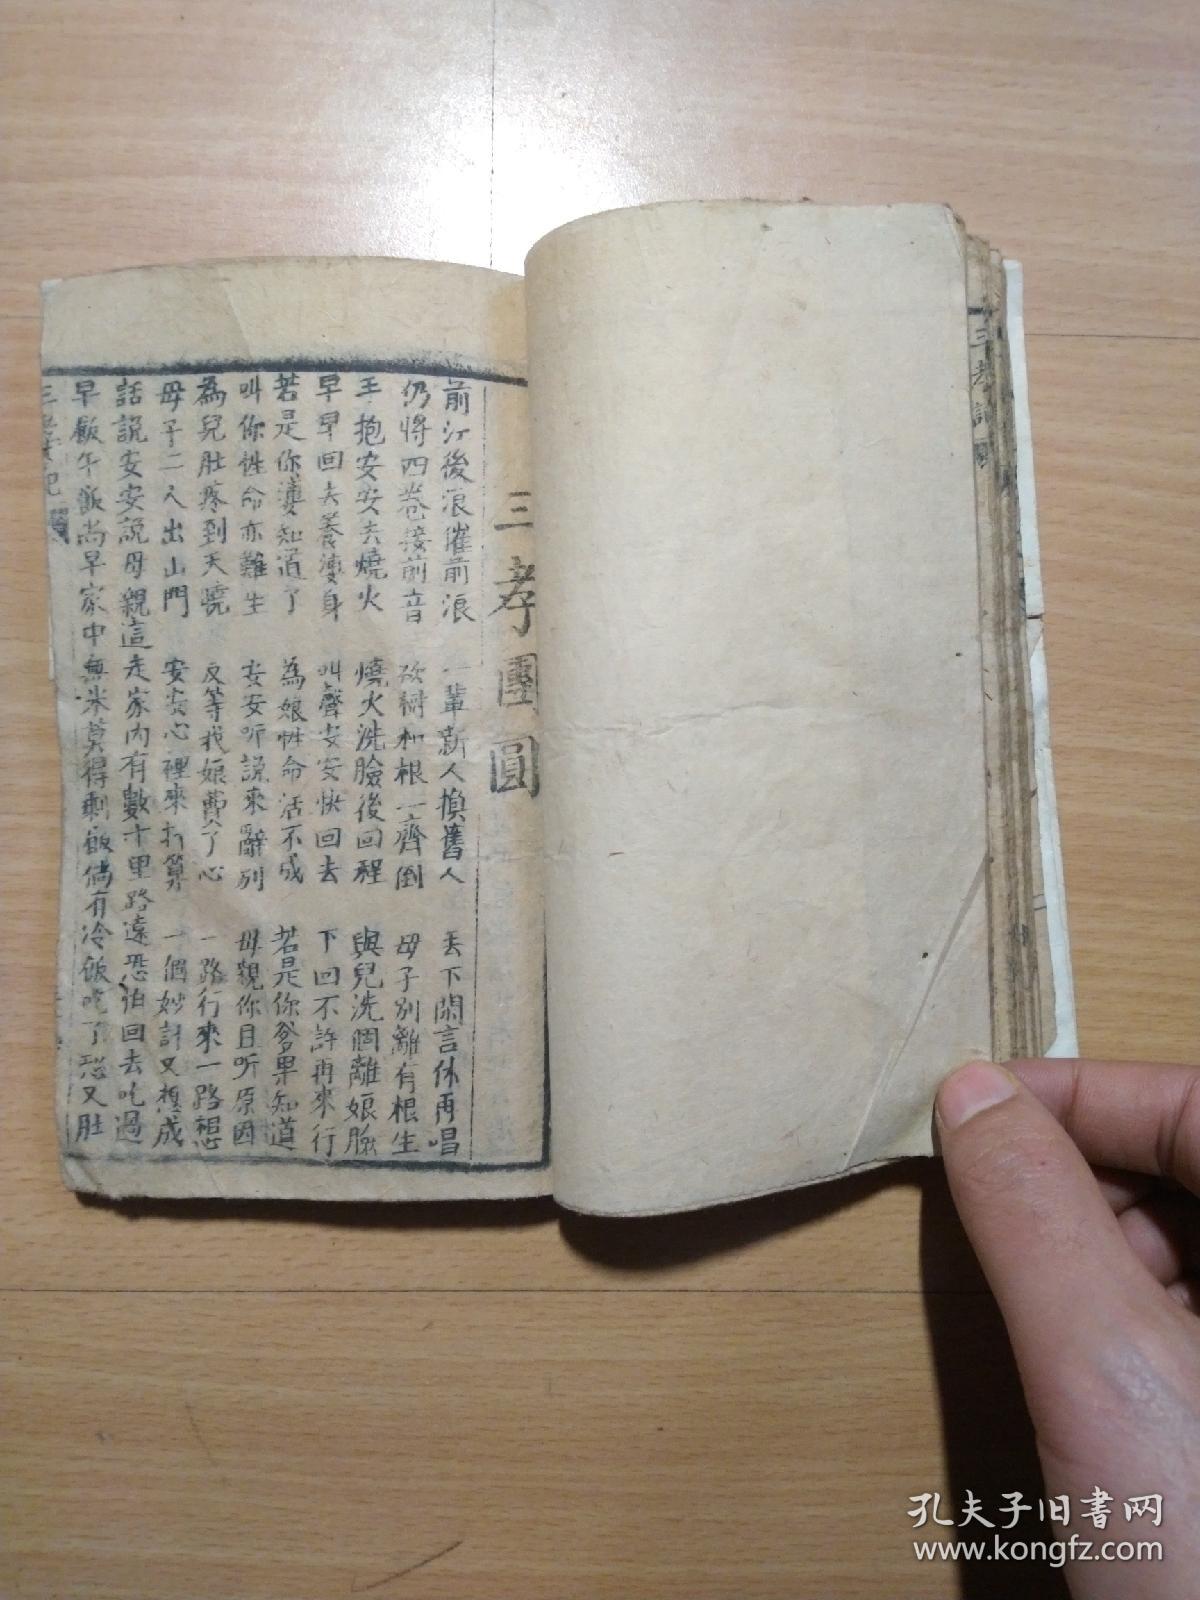 三孝團圓
前江後浪催前浪 一輩新人換舊人 丢下閑言休再唱
仍將四卷接前音 砍樹和根一齊倒 母子別離有根生
手抱安安去燒火 燒火洗臉後回程 與兒洗個離娘臉
早早回去養凄身 叫聲安安快回去 下回不許再來行
若是你凄知道了 為娘性命活不成 若是你爹果知道
叫你性命亦難生 安安听說來辭別 母親你且听原因
為兒肚疼到天曉 反等我娘費了心 一路行來一路想
母子二人出山門 安安心裡來打算 一個妙計又想成
話說安安說母親這走家內有數十里路遠恐怕回去吃過
早飯午飯尚早家中無米莫得剩飯倘有冷飯吃了恐又肚
三孝記
三孝記
孔夫子旧書网
www.kongfz.com